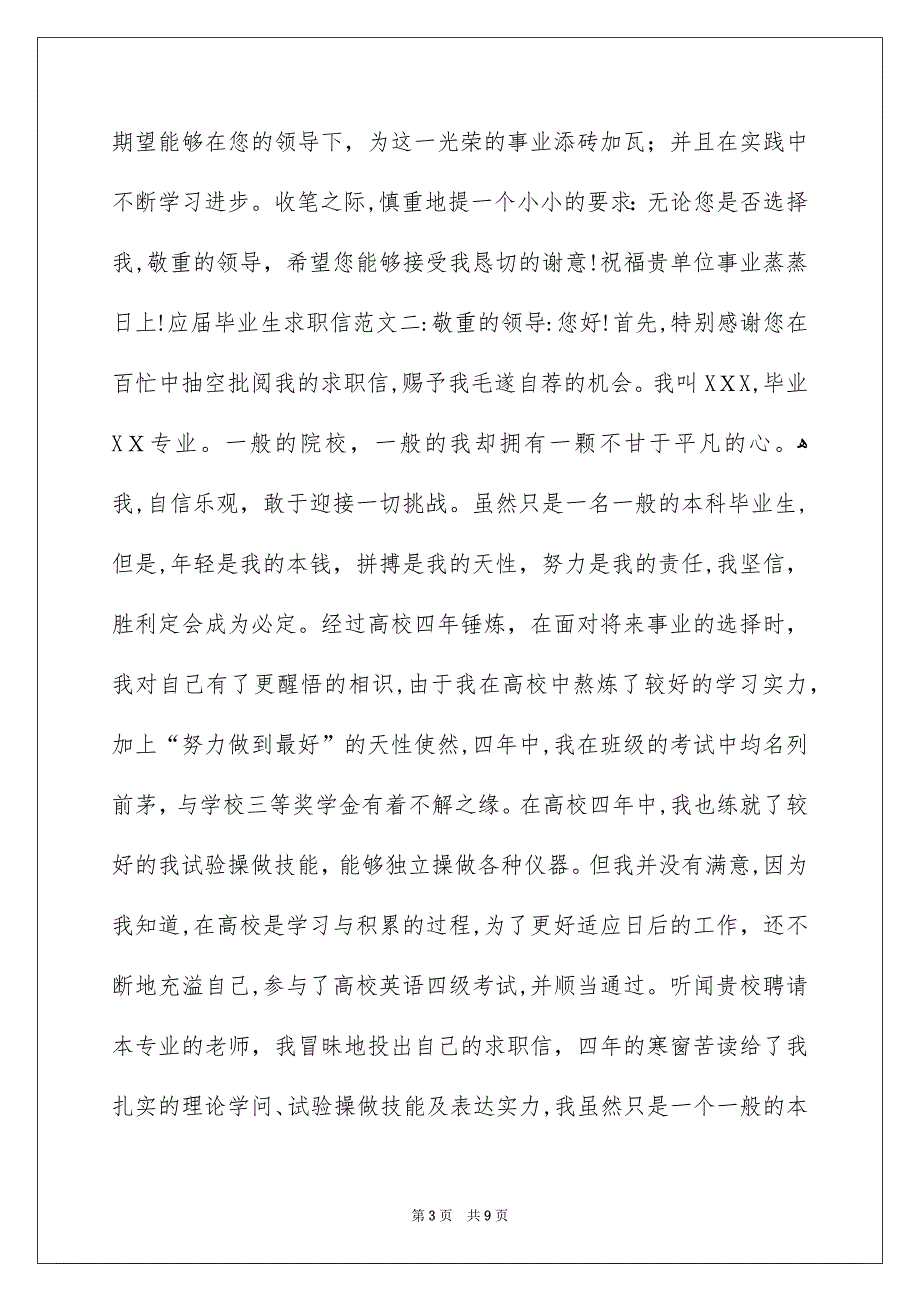 期望能够在您的领导下，为这一光荣的事业添砖加瓦；并且在实践中
不断学习进步。收笔之际,慎重地提一个小小的要求：无论您是否选择
我,敬重的领导，希望您能够接受我恳切的谢意!祝福贵单位事业蒸蒸
日上!应届毕业生求职信范文二:敬重的领导:您好!首先,特别感谢您在
百忙中抽空批阅我的求职信,赐予我毛遂自荐的机会。我叫XXX,毕业
XX专业。一般的院校，一般的我却拥有一颗不甘于平凡的心。ﻫ
我,自信乐观，敢于迎接一切挑战。虽然只是一名一般的本科毕业生,
但是,年轻是我的本钱，拼搏是我的天性，努力是我的责任,我坚信，
胜利定会成为必定。经过高校四年锤炼，在面对将来事业的选择时，
我对自己有了更醒悟的相识,由于我在高校中熬炼了较好的学习实力,
加上“努力做到最好”的天性使然,四年中,我在班级的考试中均名列
前茅，与学校三等奖学金有着不解之缘。在高校四年中,我也练就了较
好的我试验操做技能，能够独立操做各种仪器。但我并没有满意,因为
我知道,在高校是学习与积累的过程,为了更好适应日后的工作，还不
断地充溢自己,参与了高校英语四级考试,并顺当通过。听闻贵校聘请
本专业的老师，我冒昧地投出自己的求职信，四年的寒窗苦读给了我
扎实的理论学问、试验操做技能及表达实力,我虽然只是一个一般的本
第3页 共9页